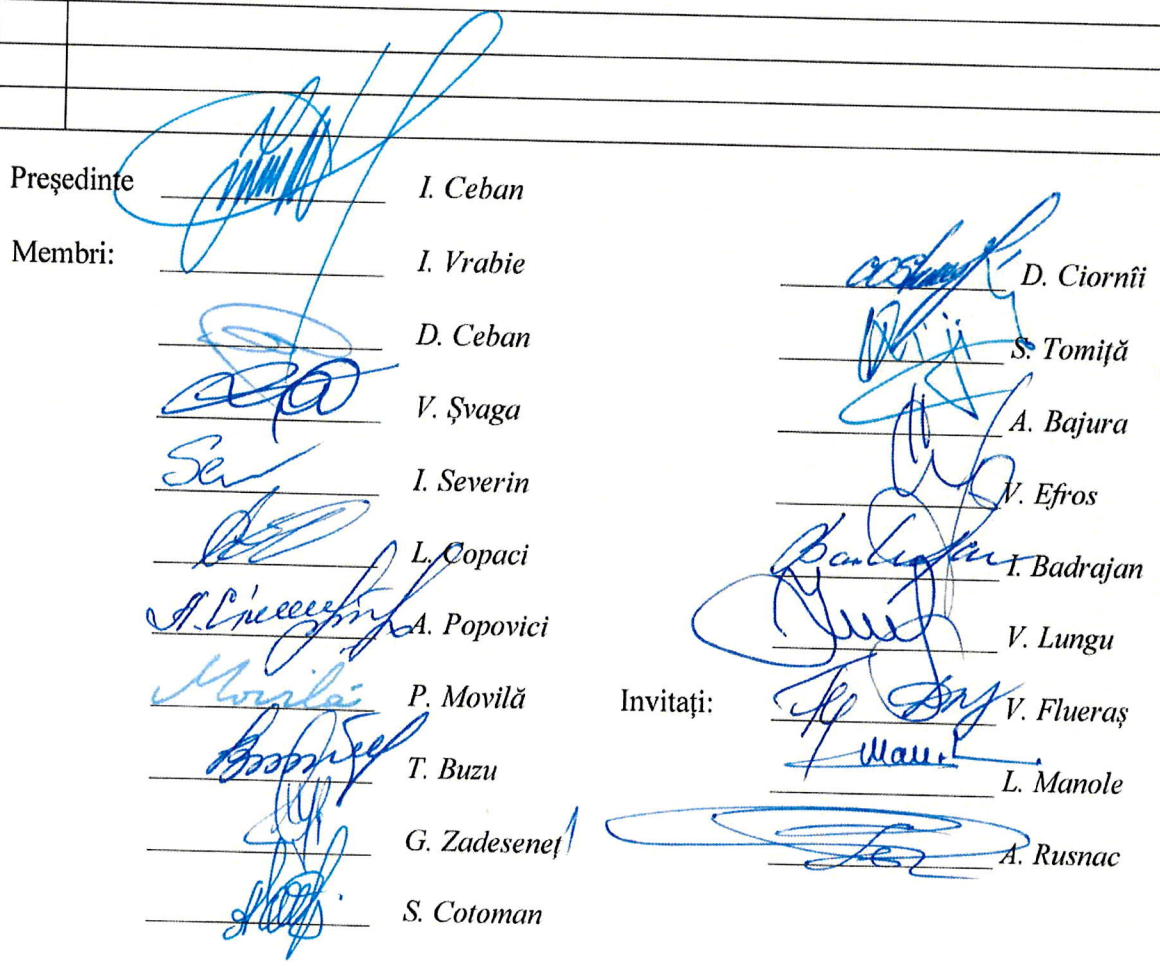 Președinte I. Ceban
Membri: I. Vrabie
D. Ceban
V. Șvaga
Sev I. Severin
L. Copaci
A. Popovici
Movilă P. Movilă
T. Buzu
G. Zadeseneț
S. Cotoman
D. Ciornîi
S. Tomiță
A. Bajura
V. Efros
I. Badrajan
V. Lungu
Invitați: V. Flueraș
L. Manole
A. Rusnac